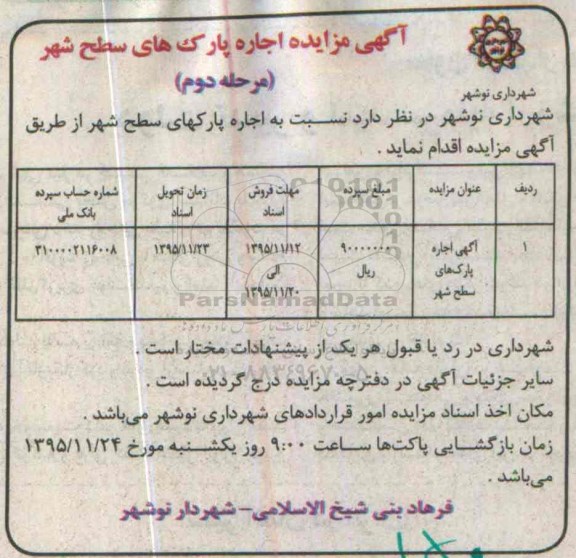 آگهی مزایده اجاره پارک های سطح شهر
(مرحله دوم)
شهرداری نوشهر
شهرداری نوشهر در نظر دارد نسبت به اجاره پارکهای سطح شهر از طریق
آگهی مزایده اقدام نماید .
ردیف	عنوان مزایده	مبلغ سپرده	مهلت فروش اسناد	زمان تحویل اسناد	شماره حساب سپرده بانک ملی
۱	آگهی اجاره پارک‌های سطح شهر	۹۰۰۰۰۰۰۰ ریال	۱۳۹۵/۱۱/۱۲ الی ۱۳۹۵/۱۱/۲۰	۱۳۹۵/۱۱/۲۳	۳۱۰۰۰۰۲۱۱۶۰۰۸
ParsNamadData
شهرداری در رد یا قبول هر یک از پیشنهادات مختار است .
سایر جزئیات آگهی در دفترچه مزایده درج گردیده است .
مکان اخذ اسناد مزایده امور قراردادهای شهرداری نوشهر می‌باشد .
زمان بازگشایی پاکت‌ها ساعت ۹:۰۰ روز یکشنبه مورخ ۱۳۹۵/۱۱/۲۴
می‌باشد .
فرهاد بنی شیخ الاسلامی- شهردار نوشهر